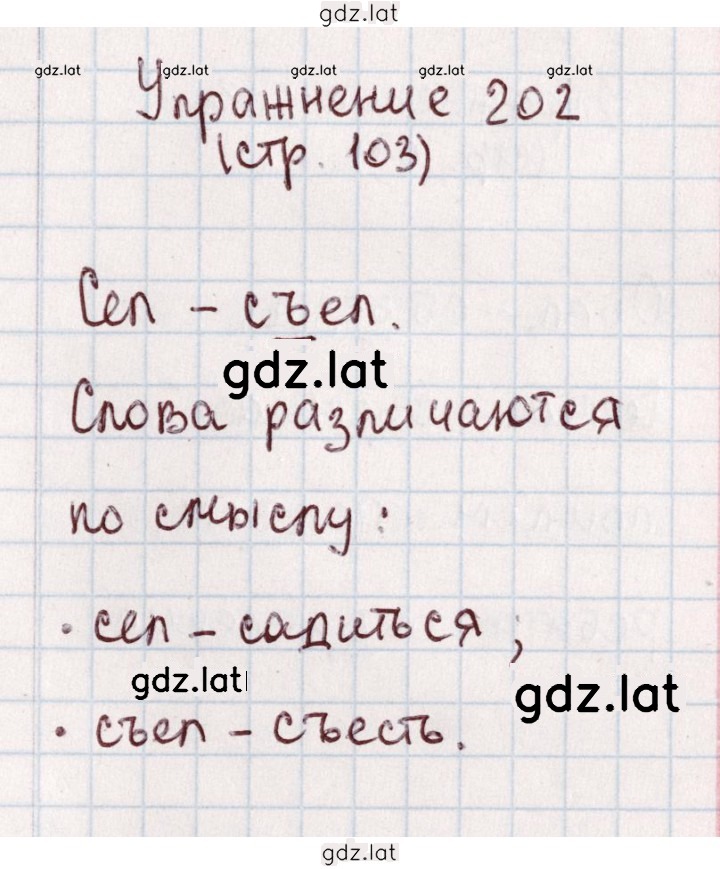 gdz.lat
gdz.lat gdz.lat gdz.lat gdz.lat gdz.lat
Упражнение 202
(стр. 103)
Сел - съел.
gdz.lat
Слова различаются
по смыслу:
· сел - садиться;
gdz.lat gdz.lat
· съел - съесть.
gdz.lat